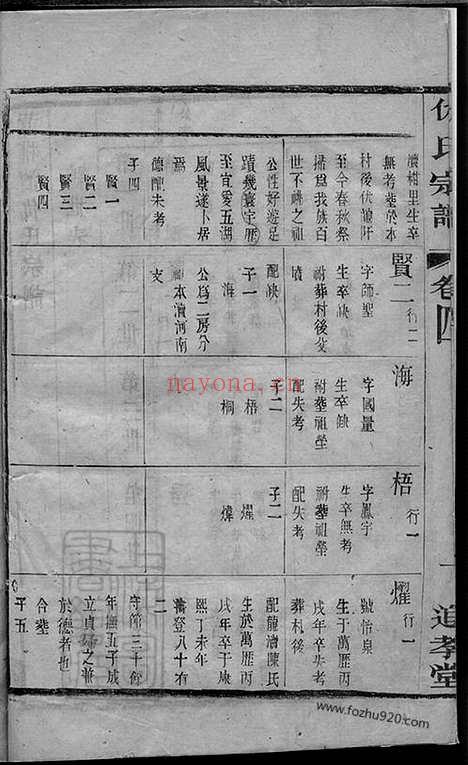 氏宗譜
卷四
道孝堂
瀆楮里生卒
無考塟於本
村後伏瀆阡
至今春秋祭
掃爲我族百
世不祧之祖
公性好遊足
蹟幾寰宇歷
至宜愛五湖
風景遂卜居
焉
德配未考
子四
賢一
賢二
賢三
賢四
賢二 行二
字師聖
生卒缺
祔葬村後
墳
配缺
子一
海
公爲二房分
本瀆河南
支
海
字國量
生卒缺
祔塟祖塋
配失考
子二
梧
桐
梧 行一
字鳳宇
生卒無考
祔塟祖塋
配失考
子二
燿
燁
燿 行一
號怡泉
生于萬歷丙
戌年卒失考
葬村後
配龍瀆陳氏
生於萬歷丙
戌年卒于康
熙丁未年
壽登八十有
二
守節三十餘
年撫五子成
立貞之兼
於德者也
合塟
子五
nayona.cn
www.fozhu920.com